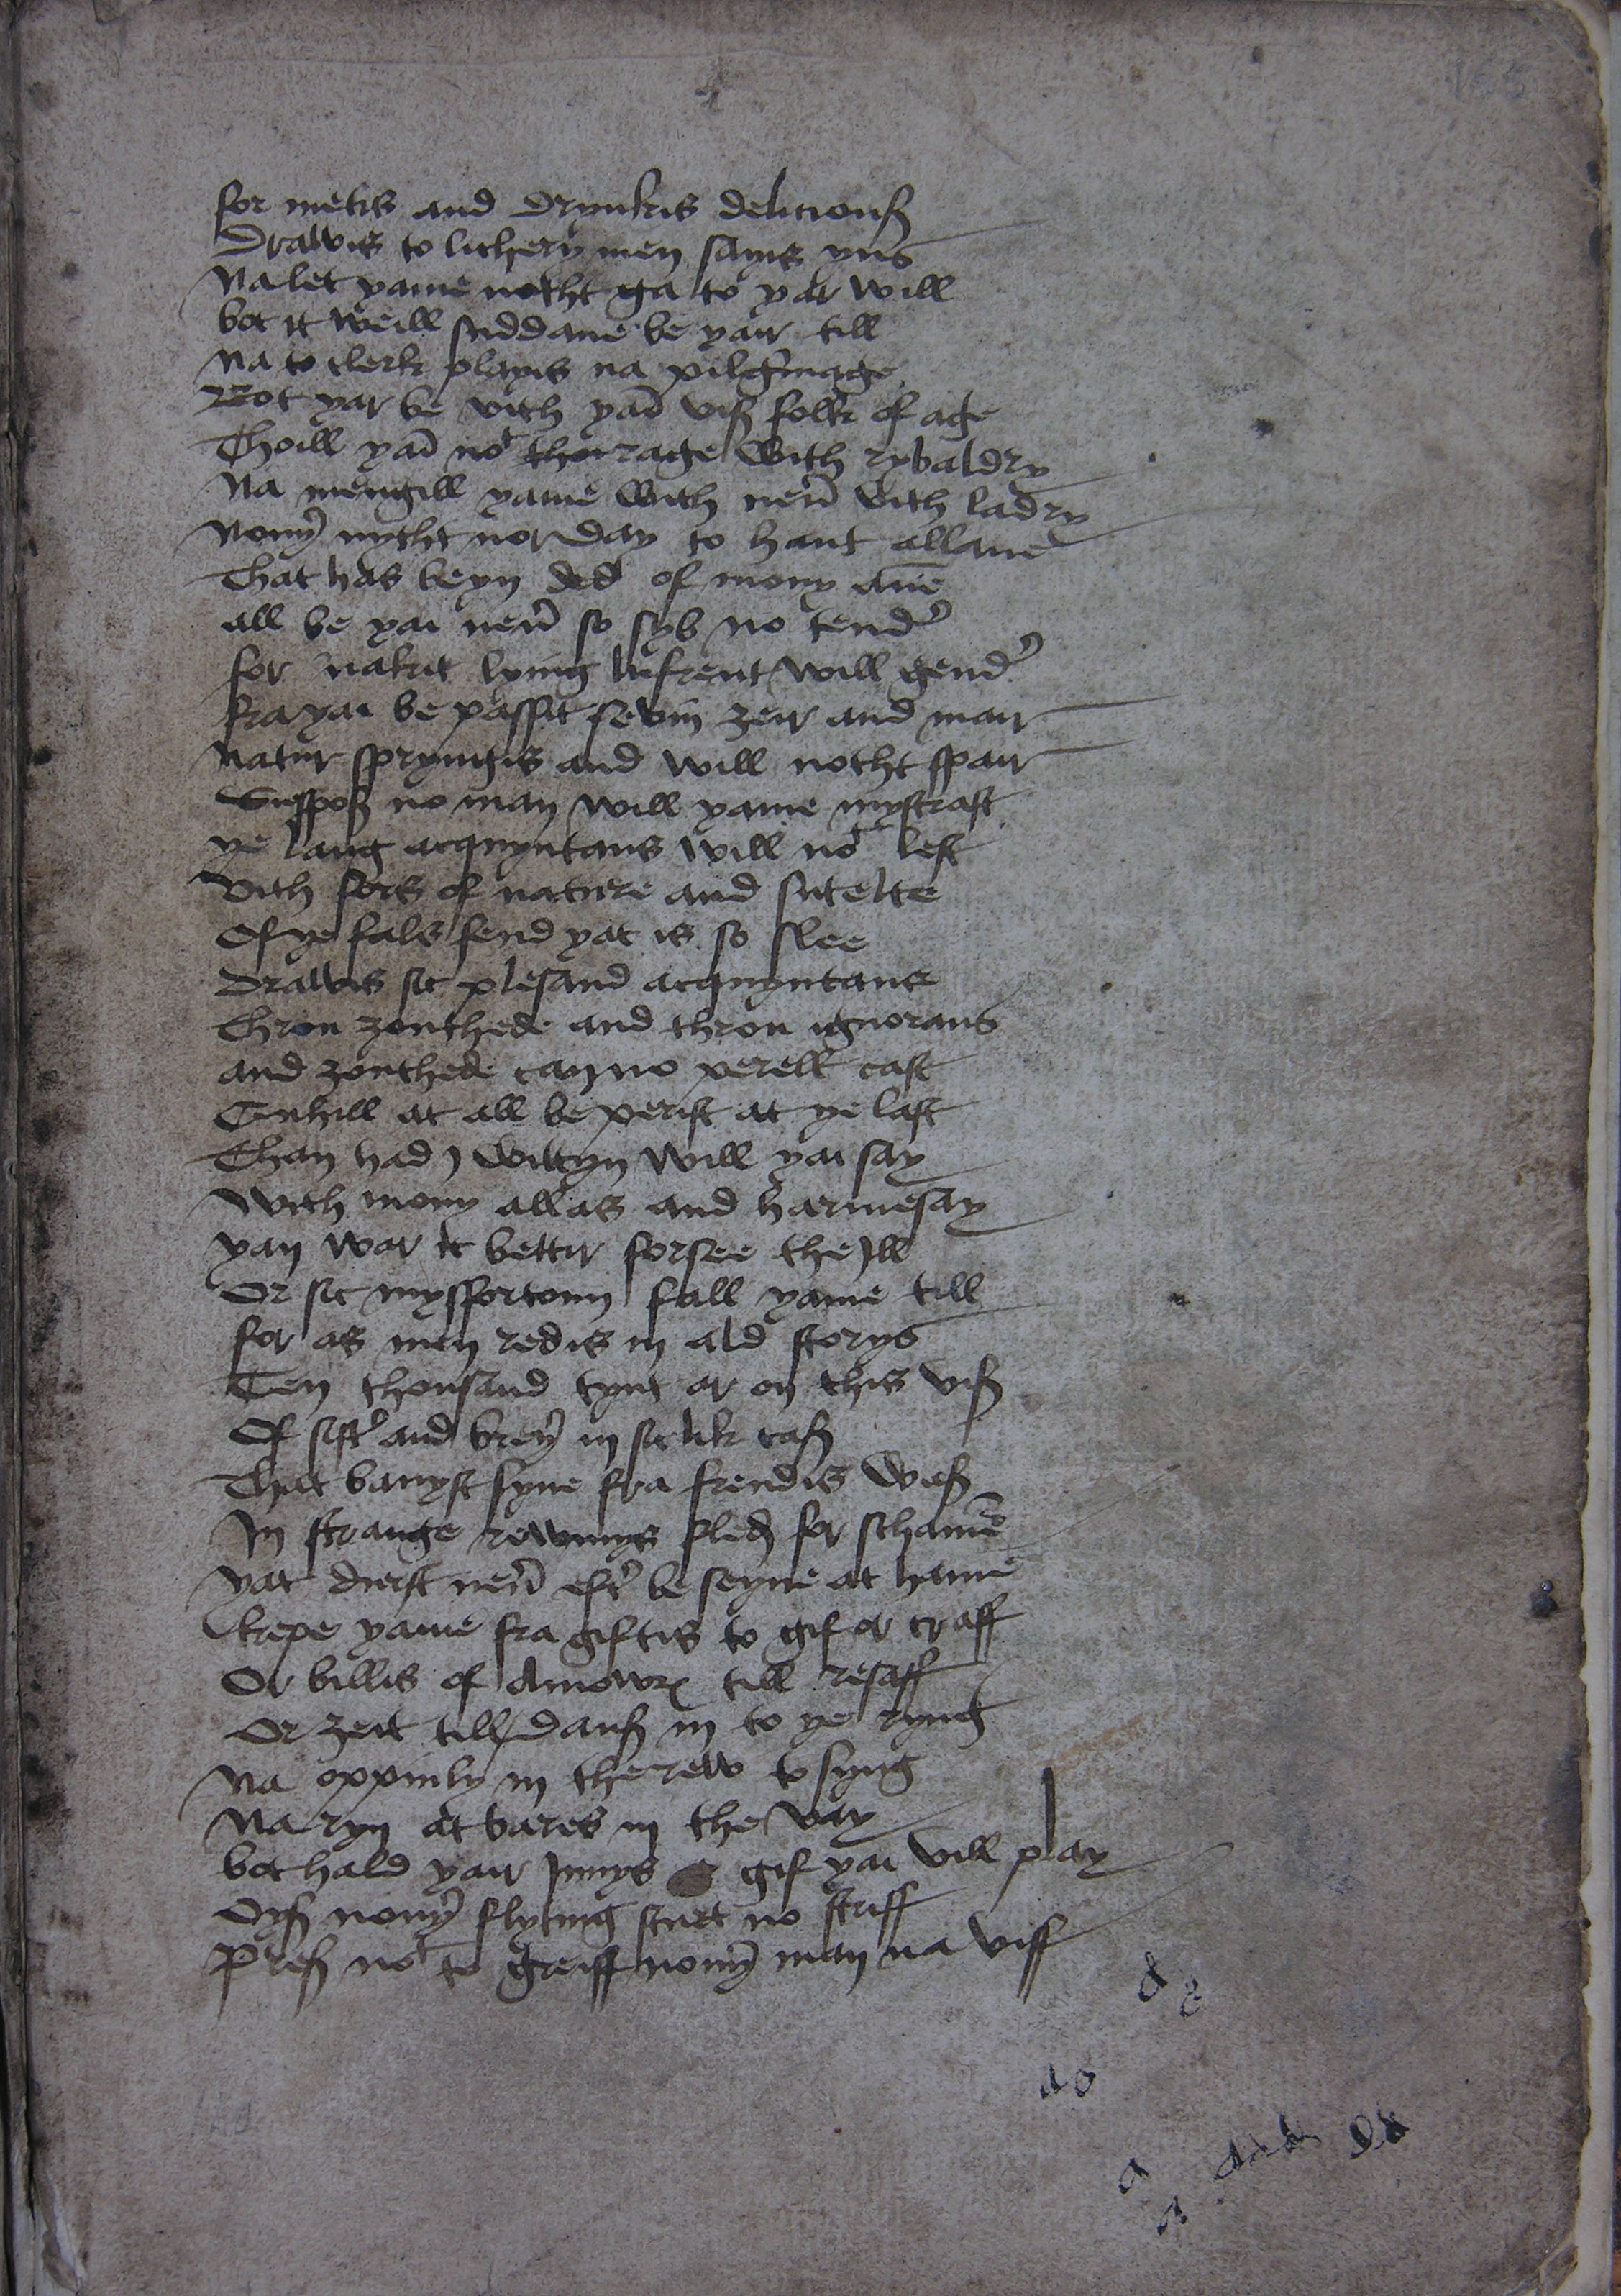 for metis and drynkis delitiouß
Drawis to lichery men sayis yus
Na let yame notht ga to yar will
bot it weill suddane be yair till
Na to clerk playis na pilgrmage
Bot yar be vith yam viß folk of age
Thoill yam not thou rage With rybaldry
Na mengill yame With neuer vith ladry
Nouyr nytht nor day to hant allane
That has beyn ded of mony ane
all be yai neuer so syb no tender
for nakit lying lufrent will gender
fra yai be passit sevin zeir and mair
Natur spryngis and will notht spair
Suppoß no man will yame mystrast
ye lang acquyntans will not lest
vith fors of nature and sutelte
Of ye fals fend yat is so slee
Drawis sic plesand acquyntans
Throu zouthede and throu ignorans
and zouthede can no perell cast
Quhill at all be perist at ye last
Than had I wittyn will yai say
With mony allas and harmesay
yan war it bettir forsee the Ill
Or sic mysfortoun fall yame till
for as men redis in ald storys
Ten thousand tynt ar on this viß
Of sister and breyer in sic lik caß
That banyst syne fra frendis waß
In strange rewmys fled for schame
yat durst neuer efter be seyne at hame
kepe yame fra giftis to gif or craff
Or billis of Amowris till resaff
Or zeit till dauß in to ye ryng
Na oppinly in the rew to syng
Na ryn at bares in the vay
bot hald yair Innys gif yai vill play
Oyß nouyr flyting sturt no striff
Preß not to greiff nouyr man na viff